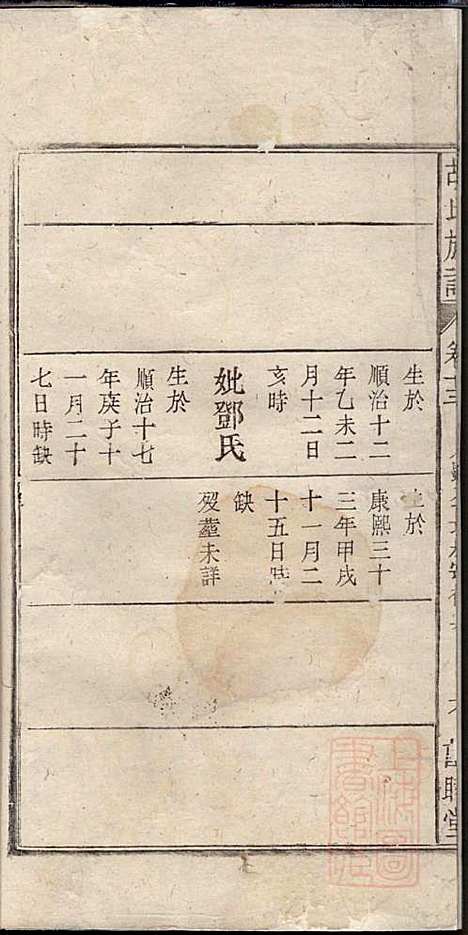 胡氏族譜
卷十三
生於
順治十二
年乙未二
月十二日
亥時
妣鄧氏
生於
順治十七
年庚子十
一月二十
七日時缺
生於
康熙三十
三年甲戌
十一月二
十五日時
缺
歿葬未詳